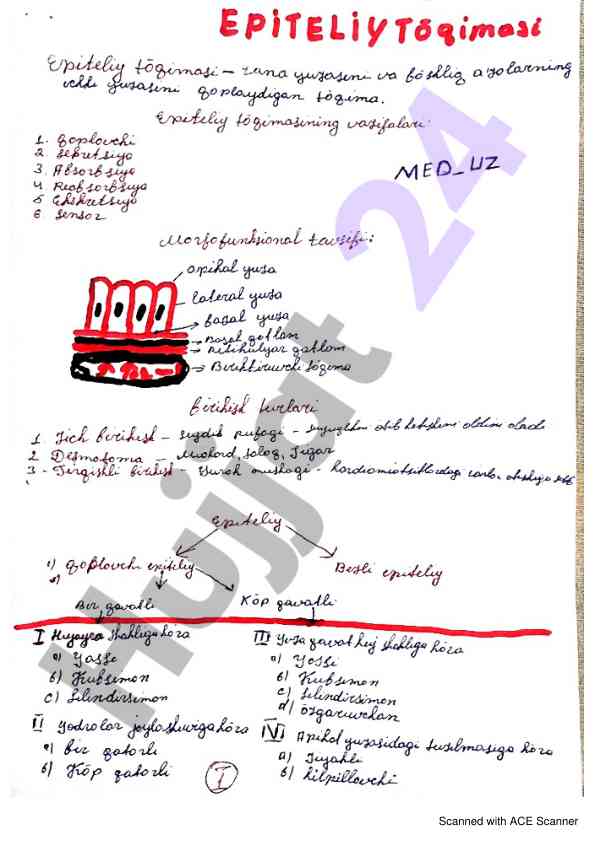 EPITELIY TŌQIMASI
Epiteliy tōqimasi – tana yuzasini va bōshliq a'zolarning
ichki yuzasini qoplaydigan tōqima.
Epiteliy tōqimasining vazifalari:
1. Qoplovchi
2. Sekretsiya
3. Absorbsiya
4. Reabsorbsiya
5. Ekskretsiya
6. Sensor
MED_UZ
Morfofunksional tavsifi:
apikal yuza
lateral yuza
bazal yuza
Bazal qatlam
Retikulyar qatlam
Biriktiruvchi tōqima
Birikish turlari
1. Zich birikish – siydik pufagi – oldini oladi
2. Desmosoma – Miokard, Jigar
3 - Tirqishli birikish – Yurak mushagi -
Epiteliy
a) Qoplovchi epiteliy
Bezli epiteliy
Bir qavatli
Kōp qavatli
I Hujayra shakliga kōra
a) Yassi
b) Kubsimon
c) Silindrsimon
II Yadrolar joylashuviga kōra
a) bir qatorli
b) Kōp qatorli
III Yuza qavat huj shakliga kōra
a) Yassi
b) Kubsimon
c) Silindrsimon
d) ōzgaruvchan
IV Apikal yuzasidagi tuzilmasiga kōra
a) Jiyakli
b) kilpillovchi
I
Hujjat 24
Scanned with ACE Scanner